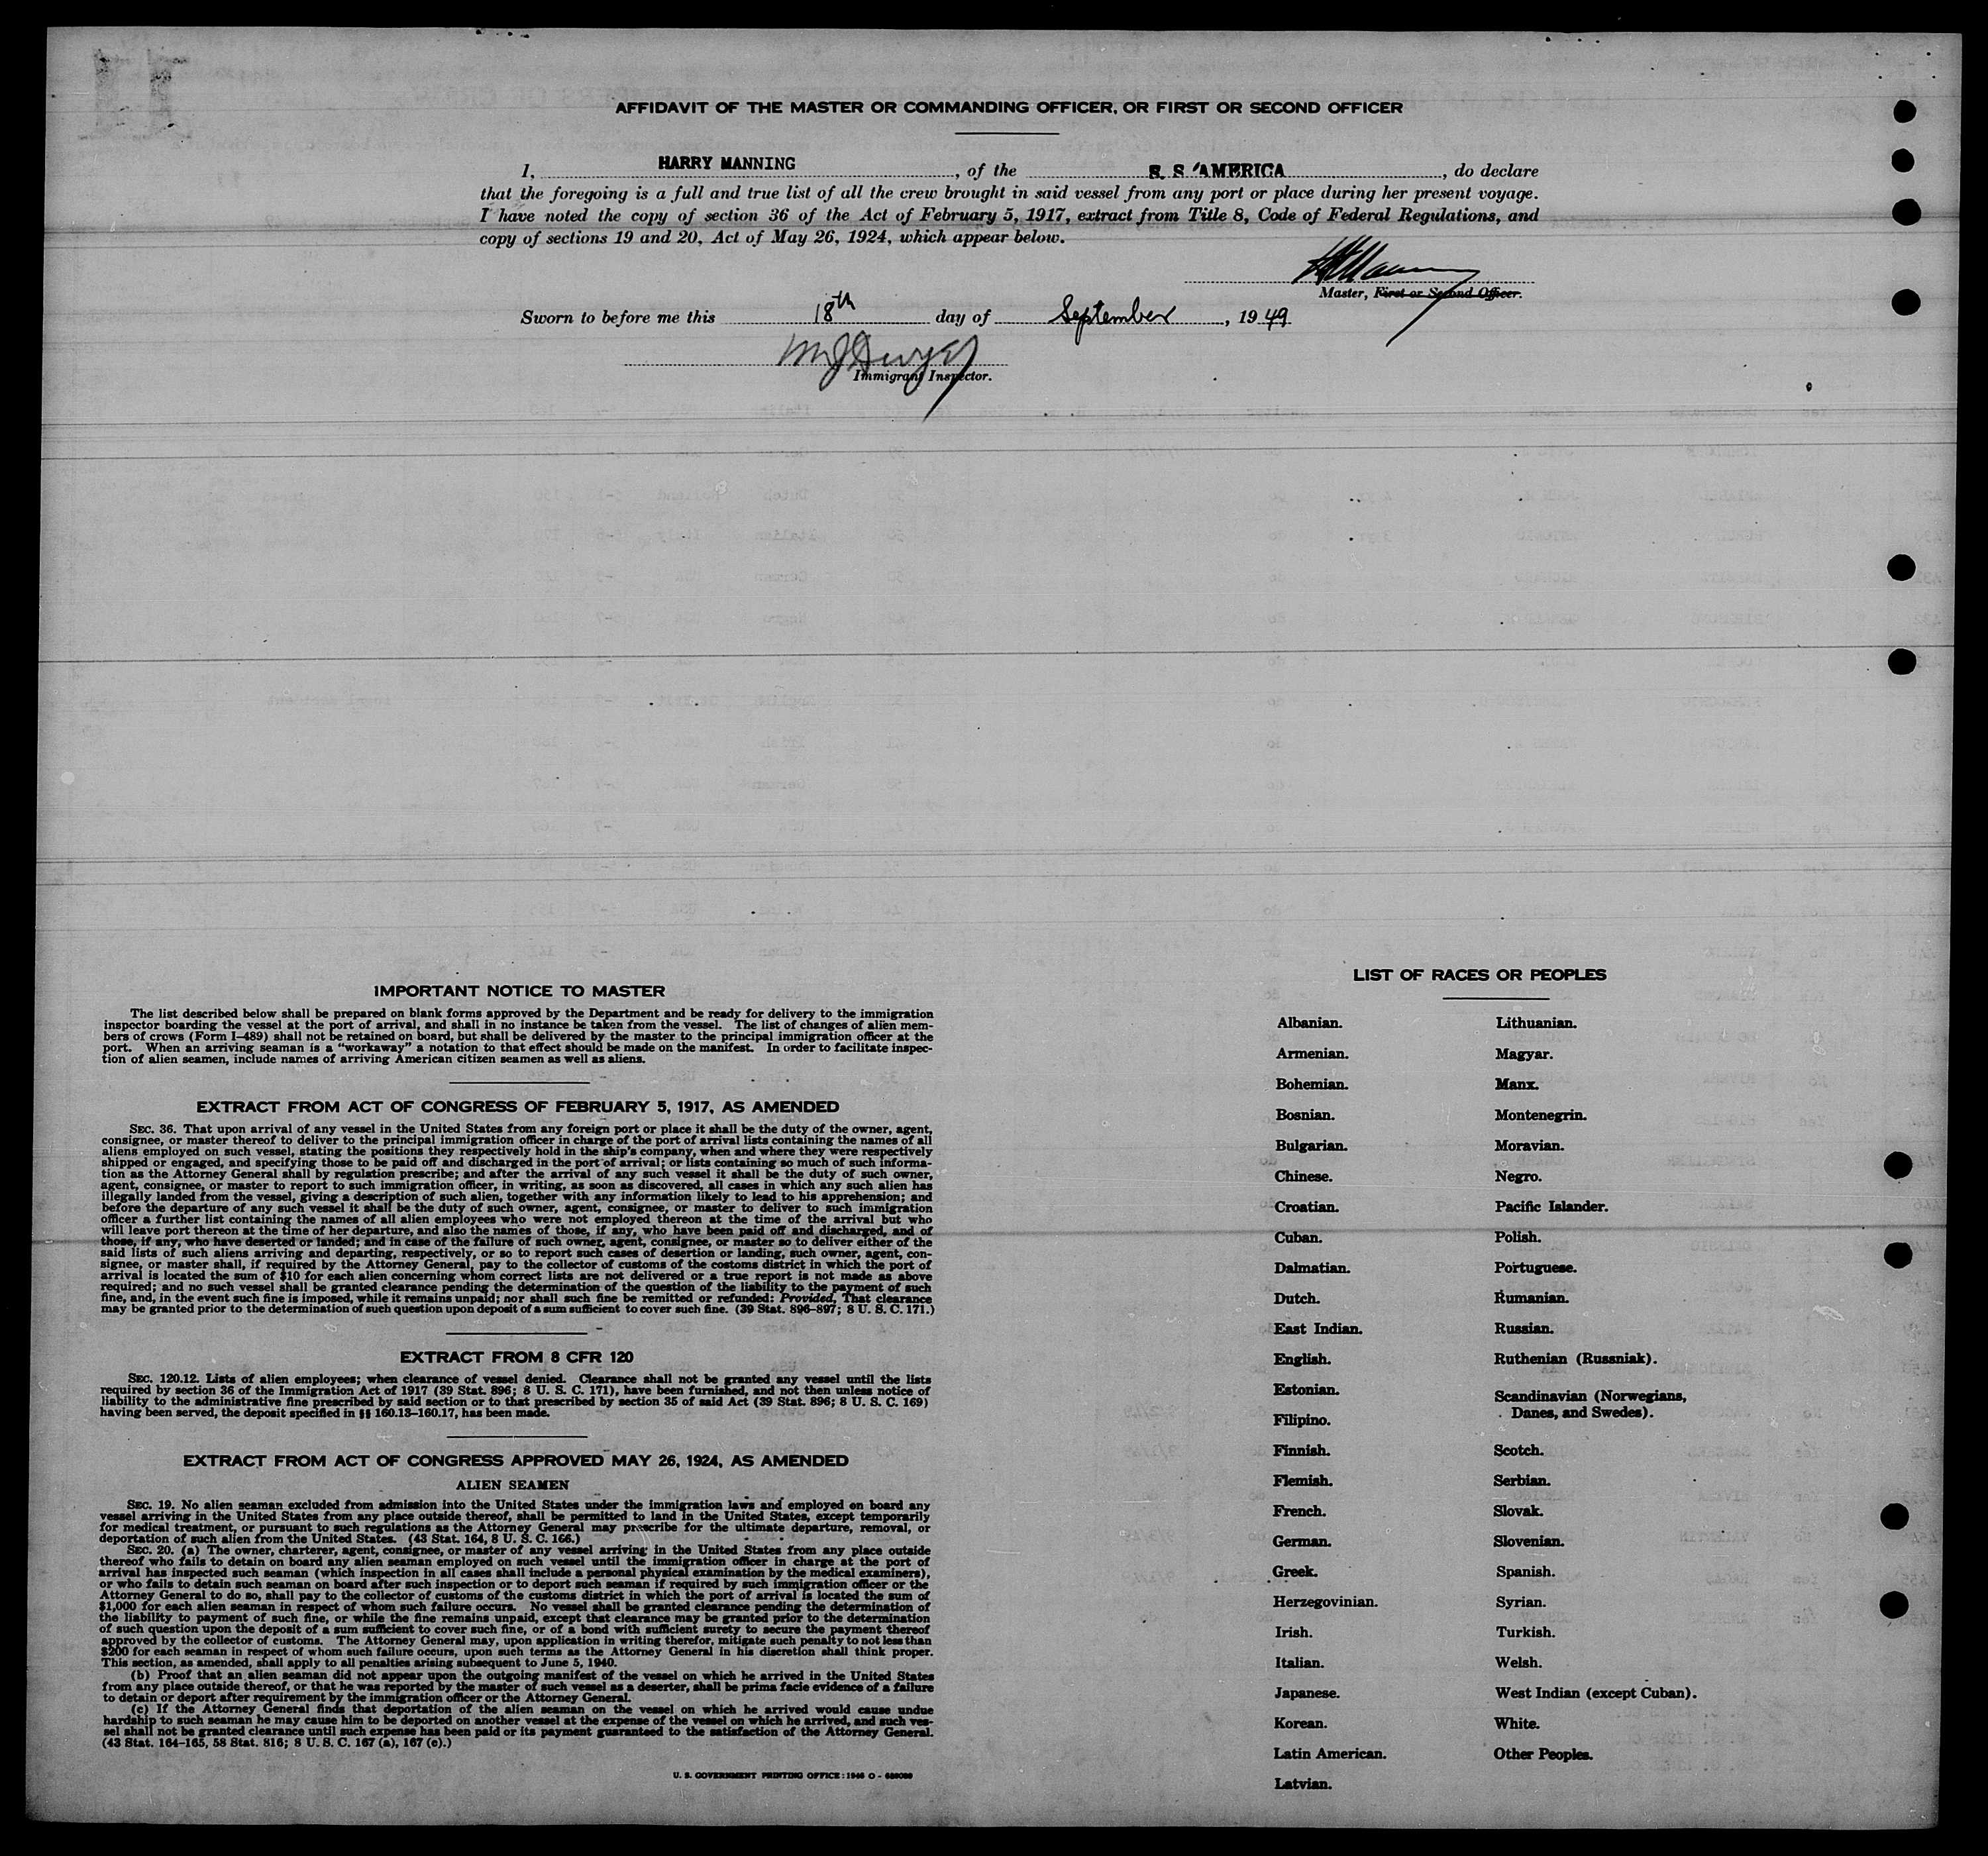 AFFIDAVIT OF THE MASTER OR COMMANDING OFFICER, OR FIRST OR SECOND OFFICER
I, HARRY MANNING, of the S. S. AMERICA, do declare
that the foregoing is a full and true list of all the crew brought in said vessel from any port or place during her present voyage.
I have noted the copy of section 36 of the Act of February 5, 1917, extract from Title 8, Code of Federal Regulations, and
copy of sections 19 and 20, Act of May 26, 1924, which appear below.
HManning
Master, First or Second Officer.
Sworn to before me this 18th day of September, 1949
Immigrant Inspector.
IMPORTANT NOTICE TO MASTER
The list described below shall be prepared on blank forms approved by the Department and be ready for delivery to the immigration
inspector boarding the vessel at the port of arrival, and shall in no instance be taken from the vessel. The list of changes of alien mem-
bers of crews (Form I-489) shall not be retained on board, but shall be delivered by the master to the principal immigration officer at the
port. When an arriving seaman is a "workaway" a notation to that effect should be made on the manifest. In order to facilitate inspec-
tion of alien seamen, include names of arriving American citizen seamen as well as aliens.
EXTRACT FROM ACT OF CONGRESS OF FEBRUARY 5, 1917, AS AMENDED
SEC. 36. That upon arrival of any vessel in the United States from any foreign port or place it shall be the duty of the owner, agent,
consignee, or master thereof to deliver to the principal immigration officer in charge of the port of arrival lists containing the names of all
aliens employed on such vessel, stating the positions they respectively hold in the ship's company, when and where they were respectively
shipped or engaged, and specifying those to be paid off and discharged in the port of arrival; or lists containing so much of such informa-
tion as the Attorney General shall by regulation prescribe; and after the arrival of any such vessel it shall be the duty of such owner,
agent, consignee, or master to report to such immigration officer, in writing, as soon as discovered, all cases in which any such alien has
illegally landed from the vessel, giving a description of such alien, together with any information likely to lead to his apprehension; and
before the departure of any such vessel it shall be the duty of such owner, agent, consignee, or master to deliver to such immigration
officer a further list containing the names of all alien employees who were not employed thereon at the time of the arrival but who
will leave port thereon at the time of her departure, and also the names of those, if any, who have been paid off and discharged, and of
those, if any, who have deserted or landed; and in case of the failure of such owner, agent, consignee, or master so to deliver either of the
said lists of such aliens arriving and departing, respectively, or so to report such cases of desertion or landing, such owner, agent, con-
signee, or master shall, if required by the Attorney General, pay to the collector of customs of the costoms district in which the port of
arrival is located the sum of $10 for each alien concerning whom correct lists are not delivered or a true report is not made as above
required; and no such vessel shall be granted clearance pending the determination of the question of the liability to the payment of such
fine, and, in the event such fine is imposed, while it remains unpaid; nor shall such fine be remitted or refunded: Provided, That clearance
may be granted prior to the determination of such question upon deposit of a sum sufficient to cover such fine. (39 Stat. 896-897; 8 U. S. C. 171.)
EXTRACT FROM 8 CFR 120
SEC. 120.12. Lists of alien employees; when clearance of vessel denied. Clearance shall not be granted any vessel until the lists
required by section 36 of the Immigration Act of 1917 (39 Stat. 896; 8 U. S. C. 171), have been furnished, and not then unless notice of
liability to the administrative fine prescribed by said section or to that prescribed by section 35 of said Act (39 Stat. 896; 8 U. S. C. 169)
having been served, the deposit specified in §§ 160.13-160.17, has been made.
EXTRACT FROM ACT OF CONGRESS APPROVED MAY 26, 1924, AS AMENDED
ALIEN SEAMEN
SEC. 19. No alien seaman excluded from admission into the United States under the immigration laws and employed on board any
vessel arriving in the United States from any place outside thereof, shall be permitted to land in the United States, except temporarily
for medical treatment, or pursuant to such regulations as the Attorney General may prescribe for the ultimate departure, removal, or
deportation of such alien from the United States. (43 Stat. 164, 8 U. S. C. 166.)
SEC. 20. (a) The owner, charterer, agent, consignee, or master of any vessel arriving in the United States from any place outside
thereof who fails to detain on board any alien seaman employed on such vessel until the immigration officer in charge at the port of
arrival has inspected such seaman (which inspection in all cases shall include a personal physical examination by the medical examiners),
or who fails to detain such seaman on board after such inspection or to deport such seaman if required by such immigration officer or the
Attorney General to do so, shall pay to the collector of customs of the customs district in which the port of arrival is located the sum of
$1,000 for each alien seaman in respect of whom such failure occurs. No vessel shall be granted clearance pending the determination of
the liability to payment of such fine, or while the fine remains unpaid, except that clearance may be granted prior to the determination
of such question upon the deposit of a sum sufficient to cover such fine, or of a bond with sufficient surety to secure the payment thereof
approved by the collector of customs. The Attorney General may, upon application in writing therefor, mitigate such penalty to not less than
$200 for each seaman in respect of whom such failure occurs, upon such terms as the Attorney General in his discretion shall think proper.
This section, as amended, shall apply to all penalties arising subsequent to June 5, 1940.
(b) Proof that an alien seaman did not appear upon the outgoing manifest of the vessel on which he arrived in the United States
from any place outside thereof, or that he was reported by the master of such vessel as a deserter, shall be prima facie evidence of a failure
to detain or deport after requirement by the immigration officer or the Attorney General.
(c) If the Attorney General finds that deportation of the alien seaman on the vessel on which he arrived would cause undue
hardship to such seaman he may cause him to be deported on another vessel at the expense of the vessel on which he arrived, and such ves-
sel shall not be granted clearance until such expense has been paid or its payment guaranteed to the satisfaction of the Attorney General.
(43 Stat. 164-165, 58 Stat. 816; 8 U. S. C. 167 (a), 167 (c).)
U. S. GOVERNMENT PRINTING OFFICE: 1946 O -
LIST OF RACES OR PEOPLES
Albanian.
Armenian.
Bohemian.
Bosnian.
Bulgarian.
Chinese.
Croatian.
Cuban.
Dalmatian.
Dutch.
East Indian.
English.
Estonian.
Filipino.
Finnish.
Flemish.
French.
German.
Greek.
Herzegovinian.
Irish.
Italian.
Japanese.
Korean.
Latin American.
Latvian.
Lithuanian.
Magyar.
Manx.
Montenegrin.
Moravian.
Negro.
Pacific Islander.
Polish.
Portuguese.
Rumanian.
Russian.
Ruthenian (Russniak).
Scandinavian (Norwegians,
Danes, and Swedes).
Scotch.
Serbian.
Slovak.
Slovenian.
Spanish.
Syrian.
Turkish.
Welsh.
West Indian (except Cuban).
White.
Other Peoples.